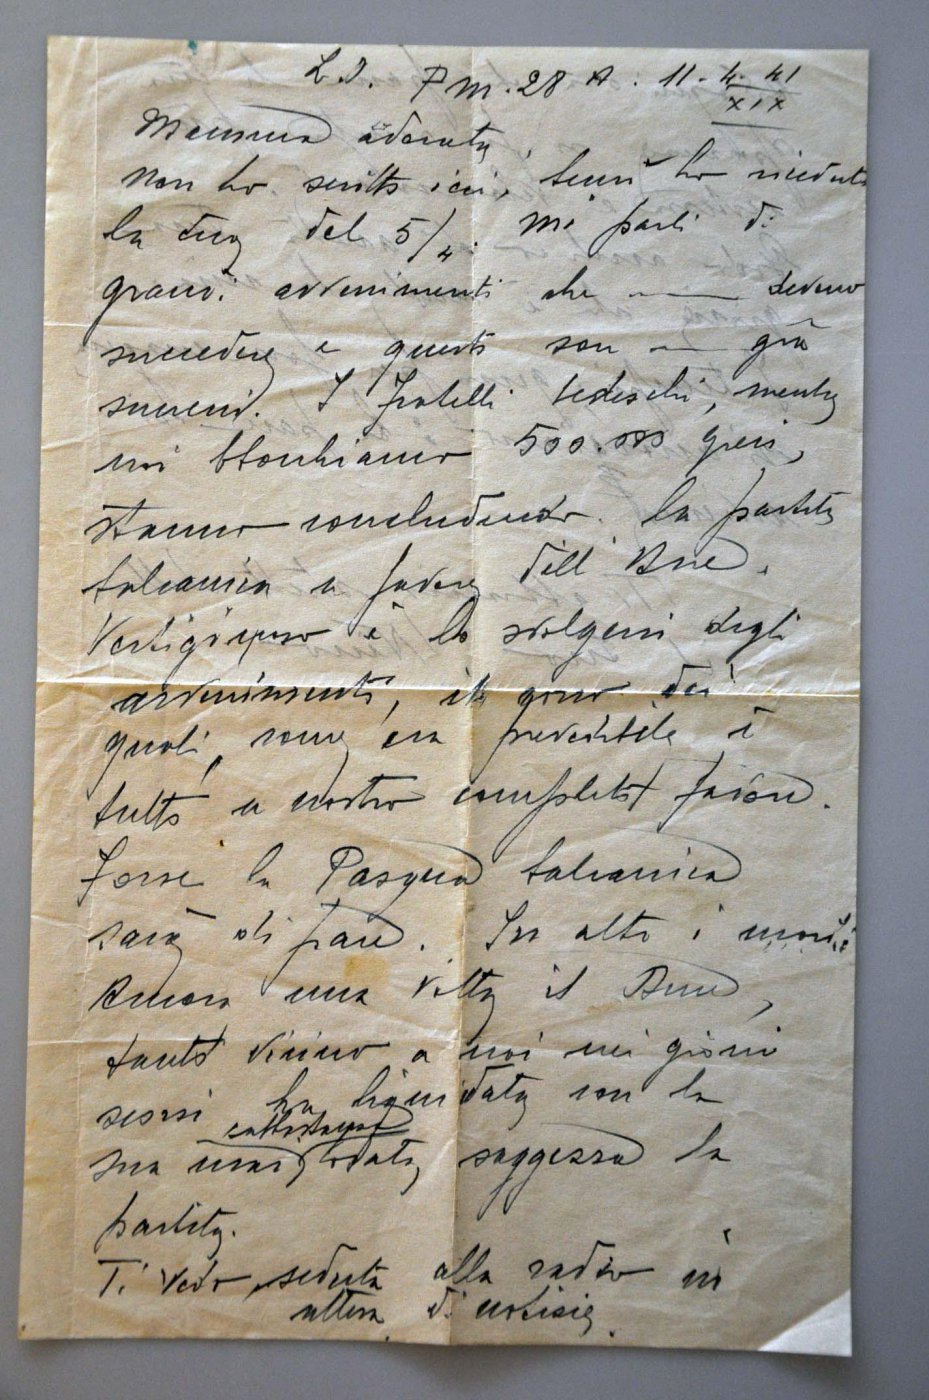 Z. I. P. M. 28 A. 11-4-41
XIX
Mamma adorata,
Non ho scritto ieri, ho ricevuto
la tua del 5/4. Mi parli di
grandi avvenimenti che devono
succedere e questi son già
successi. I fratelli tedeschi, mentre
noi blocchiamo 500.000 greci,
stanno concludendo la partita
balcanica a favore dell'Asse.
Vertiginoso è lo svolgersi degli
avvenimenti, il corso dei
quali, come era prevedibile è
tutto a nostro completo favore.
Forse la Pasqua balcanica
sarà di pace. In alto i
Ancora una volta il Duce,
tanto vicino a noi nei giorni
scorsi ha liquidato con la
sua saggezza la
partita.
Ti vedo seduta alla radio in
attesa di notizie.